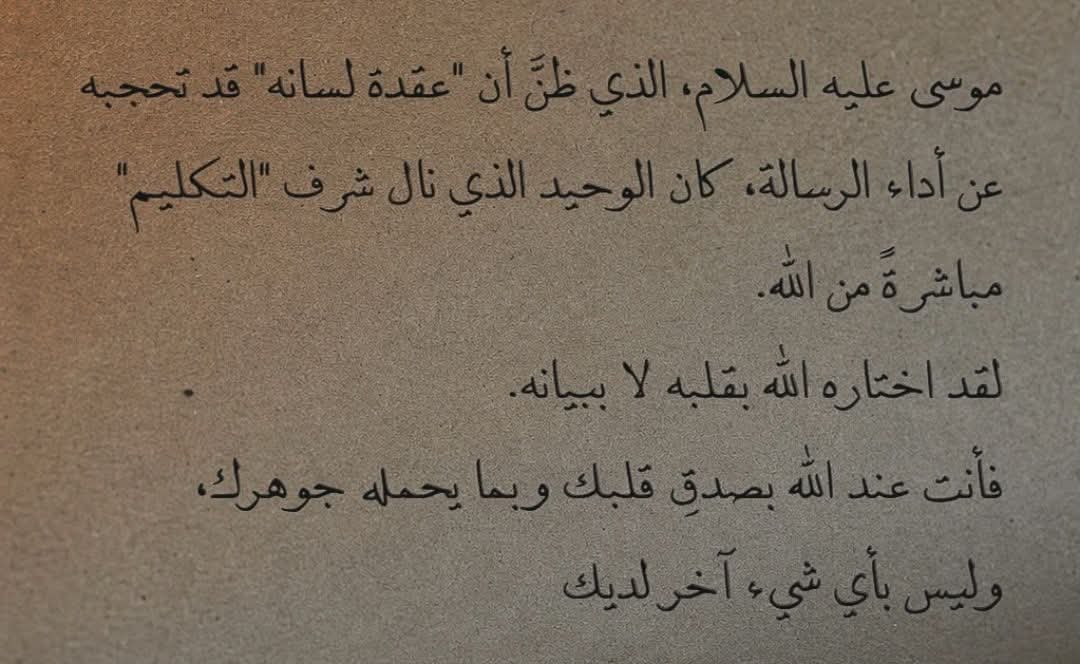 موسى عليه السلام، الذي ظنَّ أن "عقدة لسانه" قد تحجبه
عن أداء الرسالة، كان الوحيد الذي نال شرف "التكليم"
مباشرةً من الله.
لقد اختاره الله بقلبه لا ببيانه.
فأنت عند الله بصدقِ قلبك وبما يحمله جوهرك،
وليس بأي شيء آخر لديك